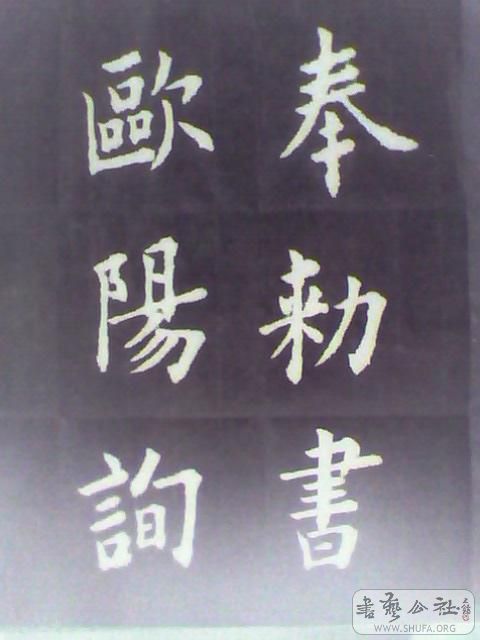 奉勅書
歐陽詢
書藝公社
WWW.SHUFA.ORG